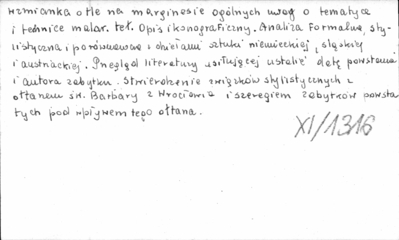 Wzmianka o tle na marginesie ogólnych uwag o tematyce
i technice malar. teł. Opis ikonograficzny. Analiza formalna, sty-
listyczna i porównawcza z dziełami sztuki niemieckiej, śląskiej
i austriackiej. Przegląd literatury usiłującej ustalić datę powstania
i autora zabytku. Stwierdzenie związków stylistycznych z
ołtarzem św. Barbary z Wrocławia i szeregiem zabytków powsta
łych pod wpływem tego ołtarza.
XI/1316